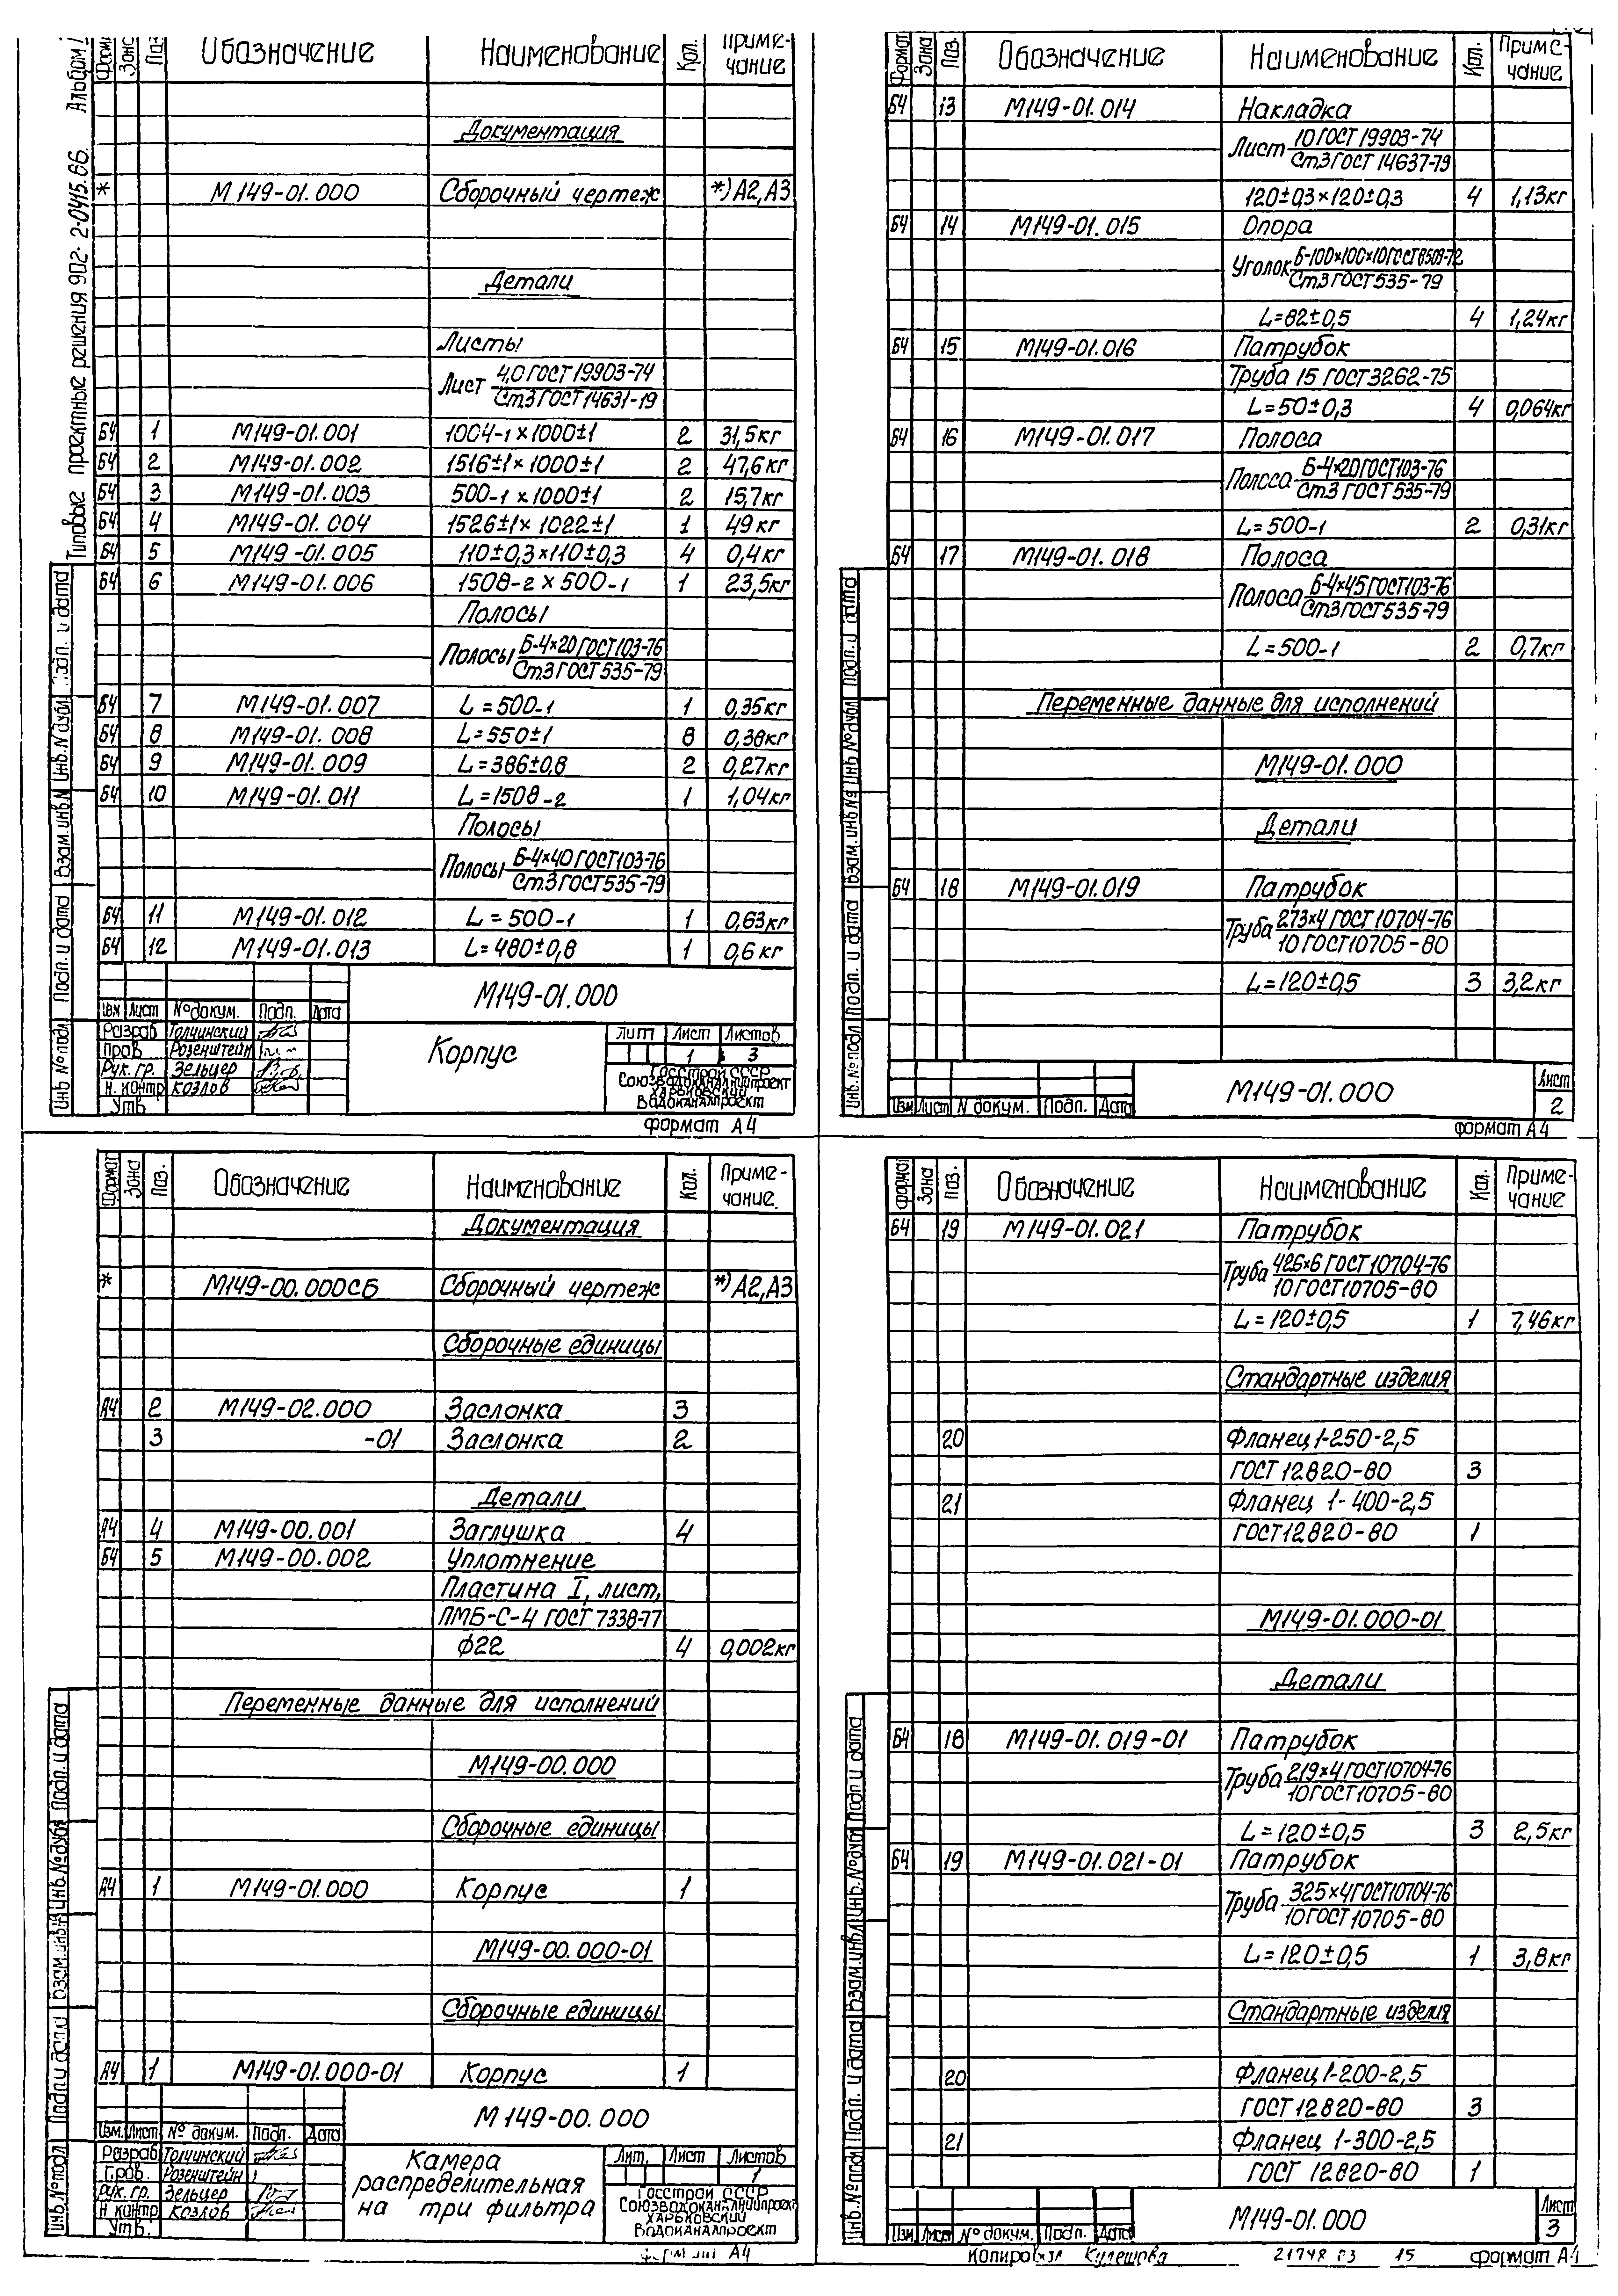 Типовые проектные решения 902-2-0415.86. Альбом I
Зона Поз Обозначение Наименование Кол. Приме-
чание
Документация
* М149-01.000 Сборочный чертеж *) А2, А3
Детали
Листы
Лист 4,0 ГОСТ 19903-74
Ст.3 ГОСТ 14631-19
БЧ 1 М149-01.001 1004-1×1000±1 2 31,5кг
БЧ 2 М149-01.002 1516±1×1000±1 2 47,6кг
БЧ 3 М149-01.003 500-1×1000±1 2 15,7кг
БЧ 4 М149-01.004 1526±1×1022±1 1 49кг
БЧ 5 М149-01.005 110±0,3×110±0,3 4 0,4кг
БЧ 6 М149-01.006 1508-2×500-1 1 23,5кг
Полосы
Полосы Б-4×20 ГОСТ 103-76
Ст.3 ГОСТ 535-79
БЧ 7 М149-01.007 L=500-1 1 0,35кг
БЧ 8 М149-01.008 L=550±1 8 0,38кг
БЧ 9 М149-01.009 L=386±0,8 2 0,27кг
БЧ 10 М149-01.011 L=1508-2 1 1,04кг
Полосы
Полосы Б-4×40 ГОСТ 103-76
Ст.3 ГОСТ 535-79
БЧ 11 М149-01.012 L=500-1 1 0,63кг
БЧ 12 М149-01.013 L=480±0,8 1 0,6кг
М149-01.000
Изм Лист №докум. Подп. Дата
Разраб Толчинский
Пров Розенштейн
Рук. гр. Зельцер
Н. контр Козлов
Утв
Корпус
Лит Лист Листов
1 3
Госстрой СССР
Союзводоканалниипроект
Харьковский
Водоканалпроект
формат А4
Инв №подл Подп. и дата Взам.инв.N Инв.N дубл Подп. и дата
Формат Зона Поз Обозначение Наименование Кол. Приме-
чание
БЧ 13 М149-01.014 Накладка
Лист 10 ГОСТ 19903-74
Ст3 ГОСТ 14637-79
120±0,3×120±0,3 4 1,13кг
БЧ 14 М149-01.015 Опора
Уголок Б-100×100×10 ГОСТ 8509-72
Ст3 ГОСТ 535-79
L=82±0,5 4 1,24кг
БЧ 15 М149-01.016 Патрубок
Труба 15 ГОСТ 3262-75
L=50±0,3 4 0,064кг
БЧ 16 М149-01.017 Полоса
Полоса Б-4×20 ГОСТ 103-76
Ст3 ГОСТ 535-79
L=500-1 2 0,31кг
БЧ 17 М149-01.018 Полоса
Полоса Б-4×45 ГОСТ 103-76
Ст3 ГОСТ 535-79
L=500-1 2 0,7кг
Переменные данные для исполнений
М149-01.000
Детали
БЧ 18 М149-01.019 Патрубок
Труба 273×4 ГОСТ 10704-76
10 ГОСТ 10705-80
L=120±0,5 3 3,2кг
М149-01.000
Лист
2
Изм Лист N докум. Подп. Дата
формат А4
Инв.№подл Подп. и дата Взам.инв№ Инв.№дубл Подп. и дата
Формат Зона Поз. Обозначение Наименование Кол. Приме-
чание.
Документация
* М149-00.000СБ Сборочный чертеж *) А2, А3
Сборочные единицы
А4 2 М149-02.000 Заслонка 3
3 -01 Заслонка 2
Детали
А4 4 М149-00.001 Заглушка 4
БЧ 5 М149-00.002 Уплотнение
Пластина I, лист,
ПМБ-С-4 ГОСТ 7338-77
ф22 4 0,002кг
Переменные данные для исполнений
М149-00.000
Сборочные единицы
А4 1 М149-01.000 Корпус 1
М149-00.000-01
Сборочные единицы
А4 1 М149-01.000-01 Корпус 1
М149-00.000
Изм. Лист № докум. Подп. Дата
Разраб Толчинский
Пров. Розенштейн
Рук. гр. Зельцер
Н контр Козлов
Утв.
Камера
распределительная
на три фильтра
Лит. Лист Листов
1
Госстрой СССР
Союзводоканалниипроект
Харьковский
Водоканалпроект
формат А4
Инв.№подл Подп и дата Взам.инв№ Инв.№дубл Подп. и дата
Формат Зона Поз. Обозначение Наименование Кол. Приме-
чание
БЧ 19 М149-01.021 Патрубок
Труба 426×6 ГОСТ 10704-76
10 ГОСТ 10705-80
L=120±0,5 1 7,46кг
Стандартные изделия
20 Фланец 1-250-2,5
ГОСТ 12820-80 3
21 Фланец 1-400-2,5
ГОСТ 12820-80 1
М149-01.000-01
Детали
БЧ 18 М149-01.019-01 Патрубок
Труба 219×4 ГОСТ 10704-76
10 ГОСТ 10705-80
L=120±0,5 3 2,5кг
БЧ 19 М149-01.021-01 Патрубок
Труба 325×4 ГОСТ 10704-76
10 ГОСТ 10705-80
L=120±0,5 1 3,8кг
Стандартные изделия
20 Фланец 1-200-2,5
ГОСТ 12820-80 3
21 Фланец 1-300-2,5
ГОСТ 12820-80 1
М149-01.000
Лист
3
Изм Лист № докум. Подп. Дата
Копировал Кулешова 21748 03 15 формат А4
Инв.№подл Подп. и дата Взам.инв№ Инв.№дубл Подп и дата